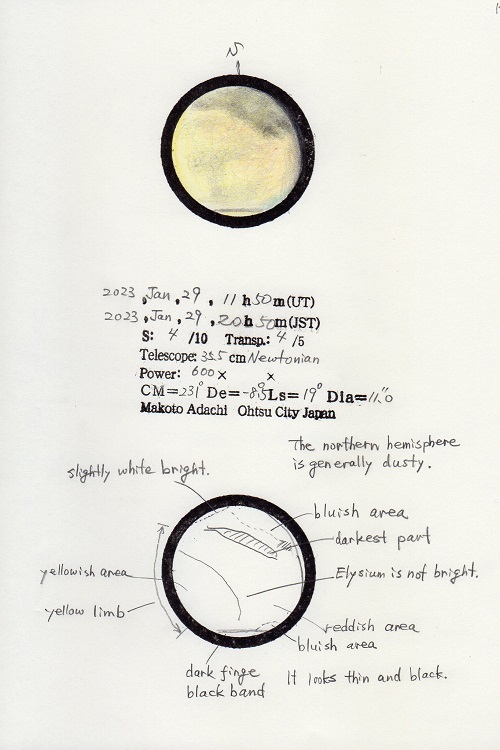 N
2023, Jan, 29, 11 h 50 m (UT)
2023, Jan, 29, 20 h 50 m (JST)
S: 4 /10 Transp.: 4 /5
Telescope: 35.5 cm Newtonian
Power: 600 × ×
CM=231° De=-8.9° Ls=19° Dia=11.0"
Makoto Adachi Ohtsu City Japan
The northern hemisphere
is generally dusty.
slightly white bright.
bluish area
darkest part
yellowish area
Elysium is not bright.
yellow limb
reddish area
bluish area
dark finge
black band
It looks thin and black.